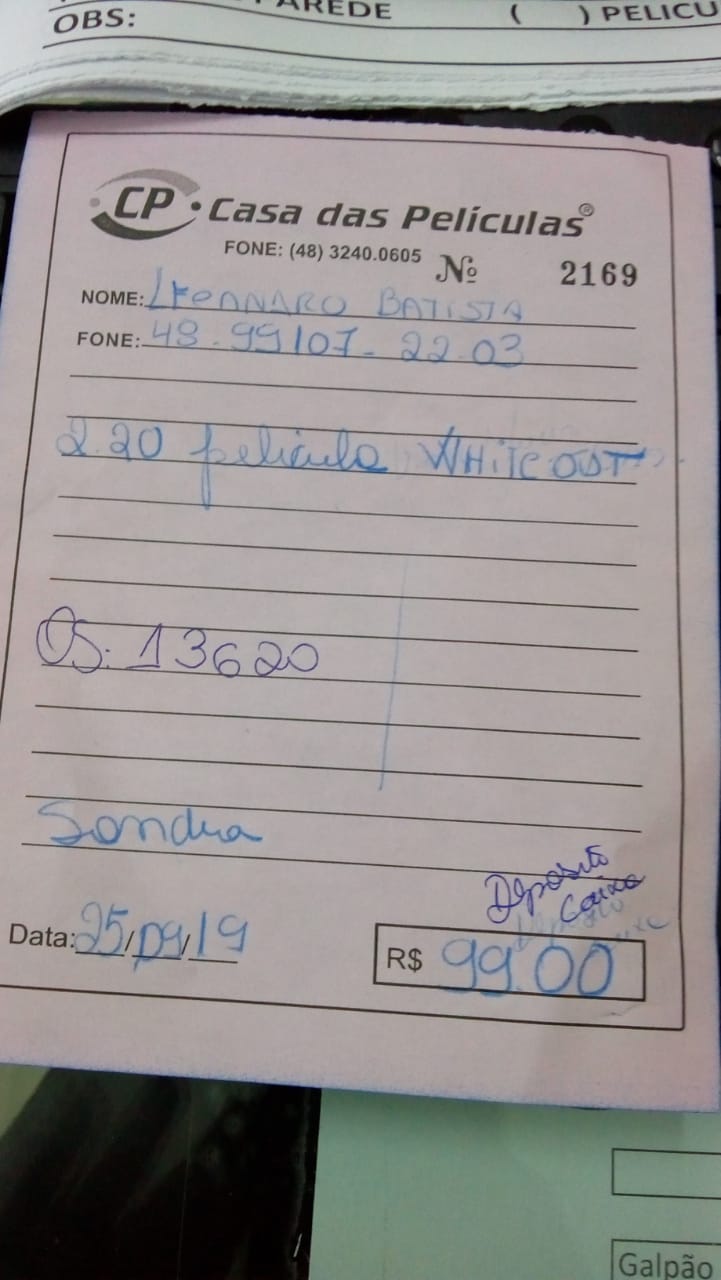 AREDE ( ) PELICU
OBS:
CP Casa das Películas®
FONE: (48) 3240.0605 Nº 2169
NOME: LEONNARO BATISTA
FONE: 48.99107-22.03
2.20 pelicula WHITE OUT
OS: 13620
Sandra
Deposito
Caixa
Data: 25/09/19 R$ 99.00
Galpão